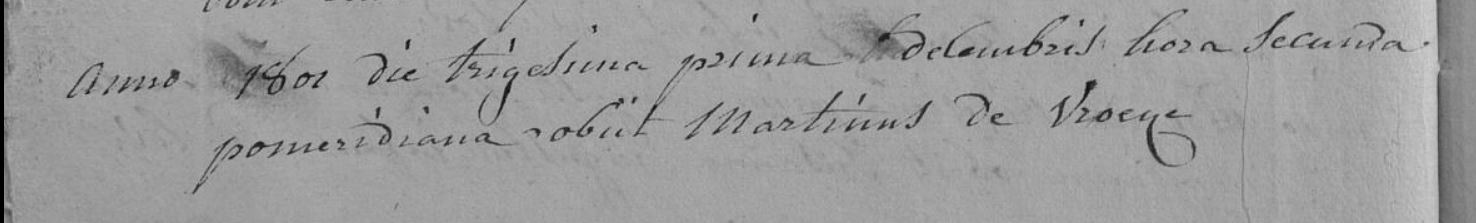 Anno 1801 die trigesima prima decembris hora secunda
pomeridiana obiit Martinus de Vroeye